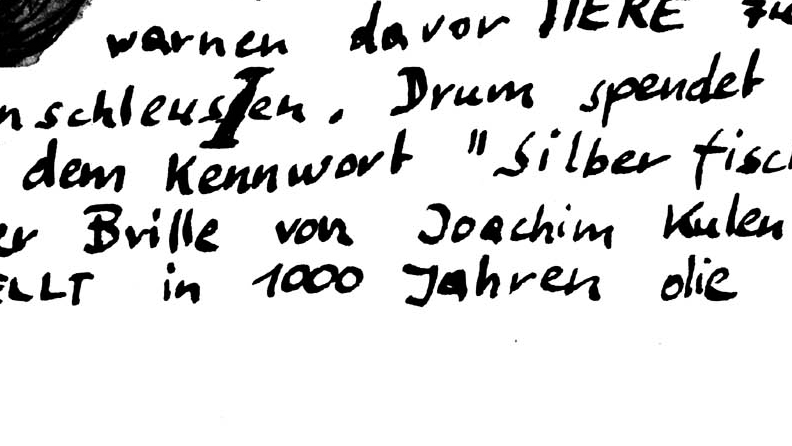 warnen davor TIERE zu
nschleusen. Drum spendet
dem Kennwort "Silberfisch
er Brille von Joachim Kulen
ELLT in 1000 Jahren die